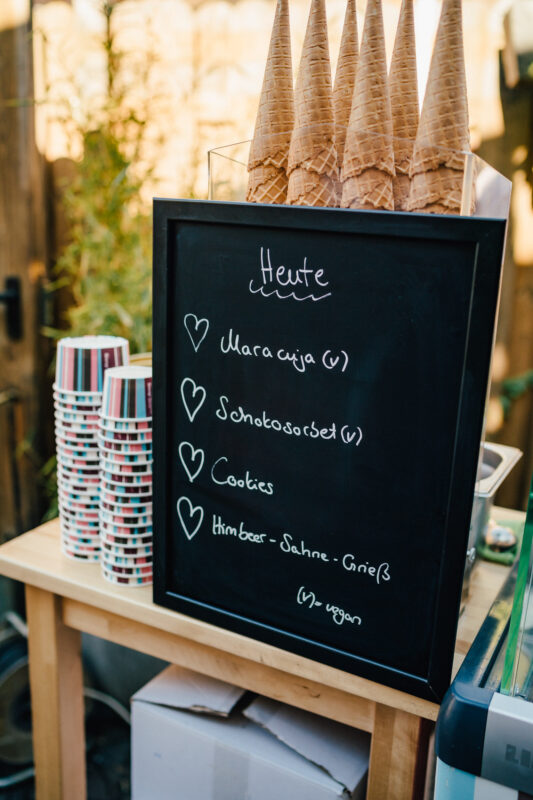 Heute
Maracuja (v)
Schokosorbet (v)
Cookies
Himbeer-Sahne-Grieß
(v)=vegan